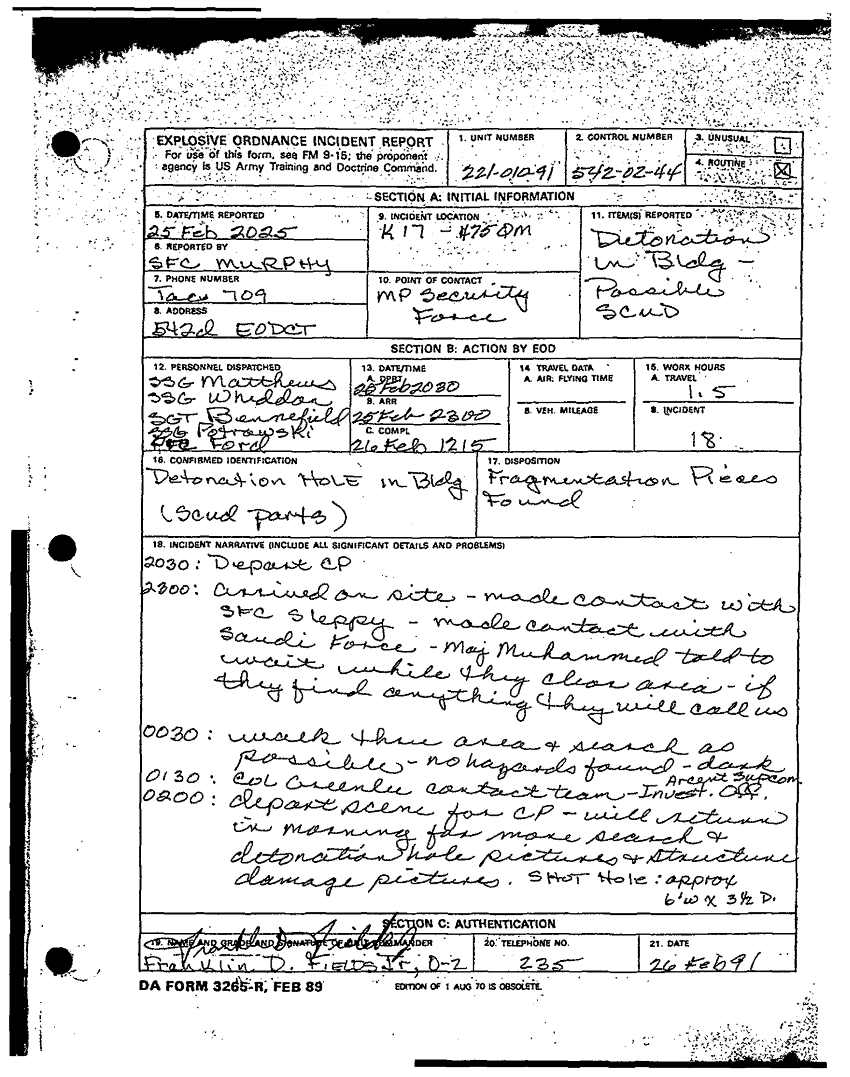 EXPLOSIVE ORDNANCE INCIDENT REPORT
For use of this form, see FM 9-15; the proponent
agency is US Army Training and Doctrine Command.
1. UNIT NUMBER
221-01091
2. CONTROL NUMBER
542-02-44
3. UNUSUAL
4. ROUTINE
SECTION A: INITIAL INFORMATION
5. DATE/TIME REPORTED
25 Feb 2025
6. REPORTED BY
SFC MURPHY
7. PHONE NUMBER
709
8. ADDRESS
542d EODCT
9. INCIDENT LOCATION
K 17 - 475 QM
10. POINT OF CONTACT
MP Security
Force
11. ITEM(S) REPORTED
Detonation
in Bldg -
Possible
SCUD
SECTION B: ACTION BY EOD
12. PERSONNEL DISPATCHED
SSG Matthews
SSG Whiddon
SGT Bennefield
SSG Potrowski
Ford
13. DATE/TIME
A. DPRT
25 Feb 2030
B. ARR
25 Feb 2300
C. COMPL
26 Feb 1215
14 TRAVEL DATA
A. AIR: FLYING TIME
B. VEH. MILEAGE
15. WORK HOURS
A. TRAVEL
1.5
B. INCIDENT
18
16. CONFIRMED IDENTIFICATION
Detonation HOLE in Bldg
(Scud parts)
17. DISPOSITION
Fragmentation Pieces
Found
18. INCIDENT NARRATIVE (INCLUDE ALL SIGNIFICANT DETAILS AND PROBLEMS)
2030: Depart CP
2300: arrived on site - made contact with
SFC Sleppy - made contact with
Saudi Force - Maj Muhammed told to
wait while they clear area - if
they find anything they will call us
0030: walk thru area & search as
possible - no hazards found - dark
0130: Col Greenlee contact team - Arcent Supcom Invest. Off.
0200: depart scene for CP - will return
in morning for more search &
detonation hole pictures & structure
damage pictures. SHOT Hole: approx
6'W X 3½ D.
SECTION C: AUTHENTICATION
19. NAME AND GRADE AND SIGNATURE OF COMMANDER
Franklin D. FIELDS Jr, O-2
20. TELEPHONE NO.
235
21. DATE
26 Feb 91
DA FORM 3265-R, FEB 89
EDITION OF 1 AUG 70 IS OBSOLETE.